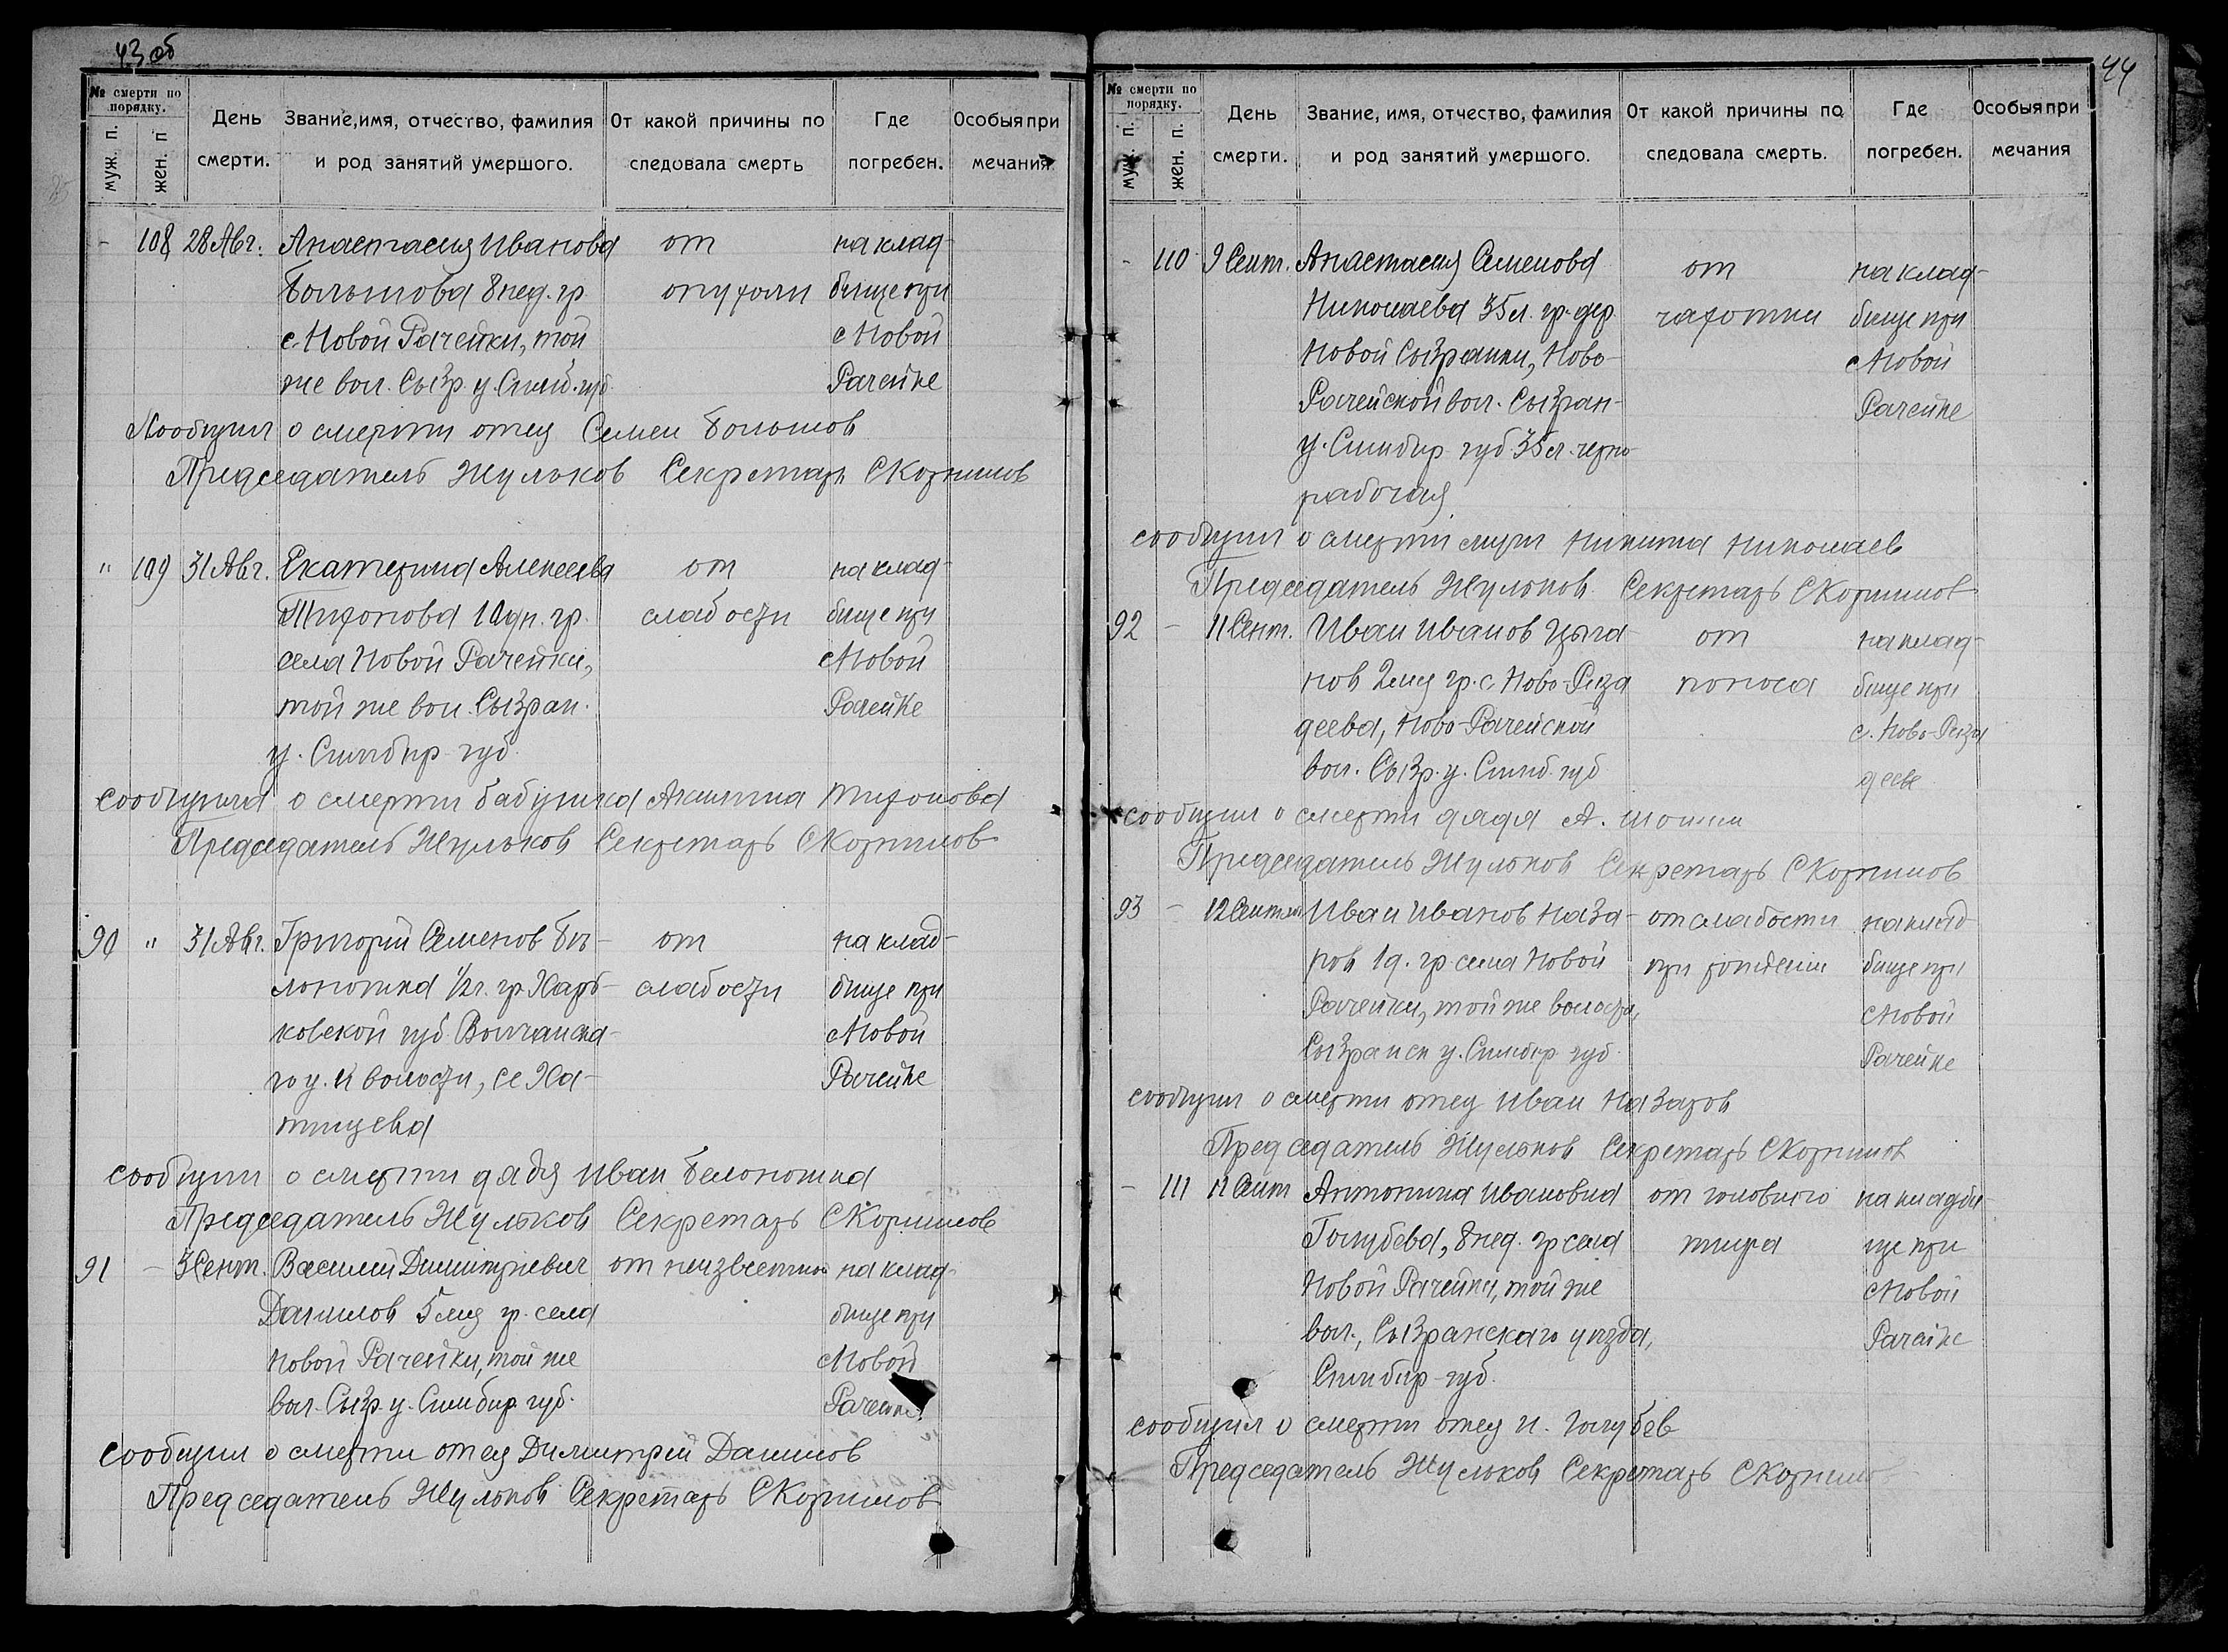 43 об
№ смерти по порядку.
муж. п.
жен. п
День смерти.
Звание, имя, отчество, фамилия и род занятий умершого.
От какой причины последовала смерть
Где погребен.
Особыя примечания
- 108 28 Авг. Анастасия Иванова от на клад-
Большова 8 нед. гр. опухоли бище при
с. Новой Рачейки, той с Новой
же вол. Сызр. у. Симб. губ. Рачейке
Сообщил о смерти отец Семен Большов
Председатель Жульков Секретарь С Корнилов
" 109 31 Авг. Екатерина Алексеева от на клад-
Тихонова 10 дн. гр. слабости бище при
села Новой Рачейки, с Новой
той же вол. Сызран. Рачейке
у. Симбир губ.
сообщила о смерти бабушка Акилина Тихонова
Председатель Жульков Секретарь С Корнилов
90 " 31 Авг. Григорий Семенов Бѣ- от на клад-
локопина 1/2 г. гр. Харь- слабости бище при
ковской губ. Волчанска- с Новой
го у. и волости, се Ха- Рачейке
тищева
сообщил о смерти дядя Иван
Председатель Жульков Секретарь С Корнилов
91 - 3 Сент. Василий Димитриевич от неизвестно на клад-
Данилов 5 мец гр. села бище при
Новой Рачейки, той же с Новой
вол. Сызр. у. Симбир губ. Рачейке
сообщил о смерти отец Димитрий Данилов
Председатель Жульков Секретарь С Корнилов
44
№ смерти по порядку.
муж. п.
жен. п.
День смерти.
Звание, имя, отчество, фамилия и род занятий умершого.
От какой причины последовала смерть.
Где погребен.
Особыя примечания
- 110 9 Сент. Анастасия Семенова от на клад-
Николаева 35 л. гр. дер чахотки бище при
Новой Сызранки, Ново- с Новой
Рачейской вол. Сызран- Рачейке
у. Симбир губ 35 л. черно-
рабочая
сообщил о смерти муж Никита Николаев
Председатель Жульков Секретарь С Корнилов
92 - 11 Сент. Иван Иванов Цыга- от на клад-
нов 2 мец гр. с. Ново-Ряза поноса бище при
деева, Ново-Рачейской с. Ново-Ряза
вол. Сызр. у. Симб. губ дееве
сообщил о смерти дядя А.
Председатель Жульков Секретарь С Корнилов
93 - 12 Сентяб Иван Иванов Наза- от слабости на клад-
ров 1 д. гр. села Новой при рождении бище при
Рачейки, той же волости, с Новой
Сызранск у. Симбир губ. Рачейке
сообщил о смерти отец Иван Назаров
Председатель Жульков Секретарь С Корнилов
- 111 12 Сент Антонина Ивановна от головного на кладби-
Голубева, 8 нед. гр села тифа ще при
Новой Рачейки, той же с Новой
вол., Сызранскаго уѣзда, Рачейке
Симбир губ.
сообщил о смерти отец И. Голубев
Председатель Жульков Секретарь С Корнилов